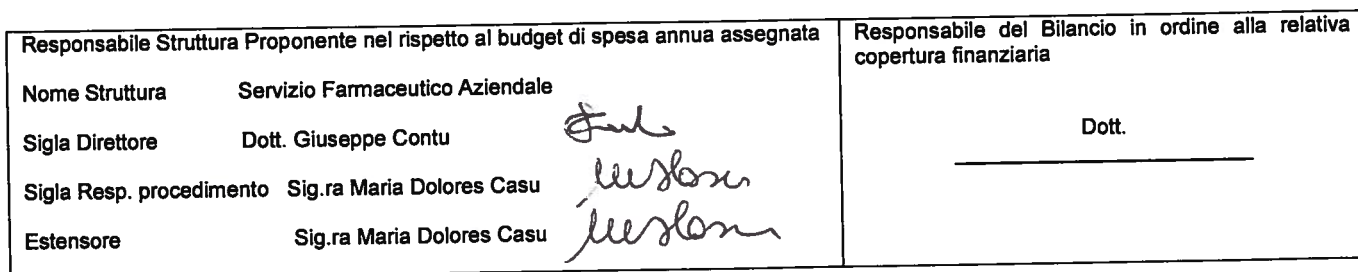 Responsabile Struttura Proponente nel rispetto al budget di spesa annua assegnata
Nome Struttura Servizio Farmaceutico Aziendale
Sigla Direttore Dott. Giuseppe Contu
Sigla Resp. procedimento Sig.ra Maria Dolores Casu
Estensore Sig.ra Maria Dolores Casu
Responsabile del Bilancio in ordine alla relativa
copertura finanziaria
Dott.